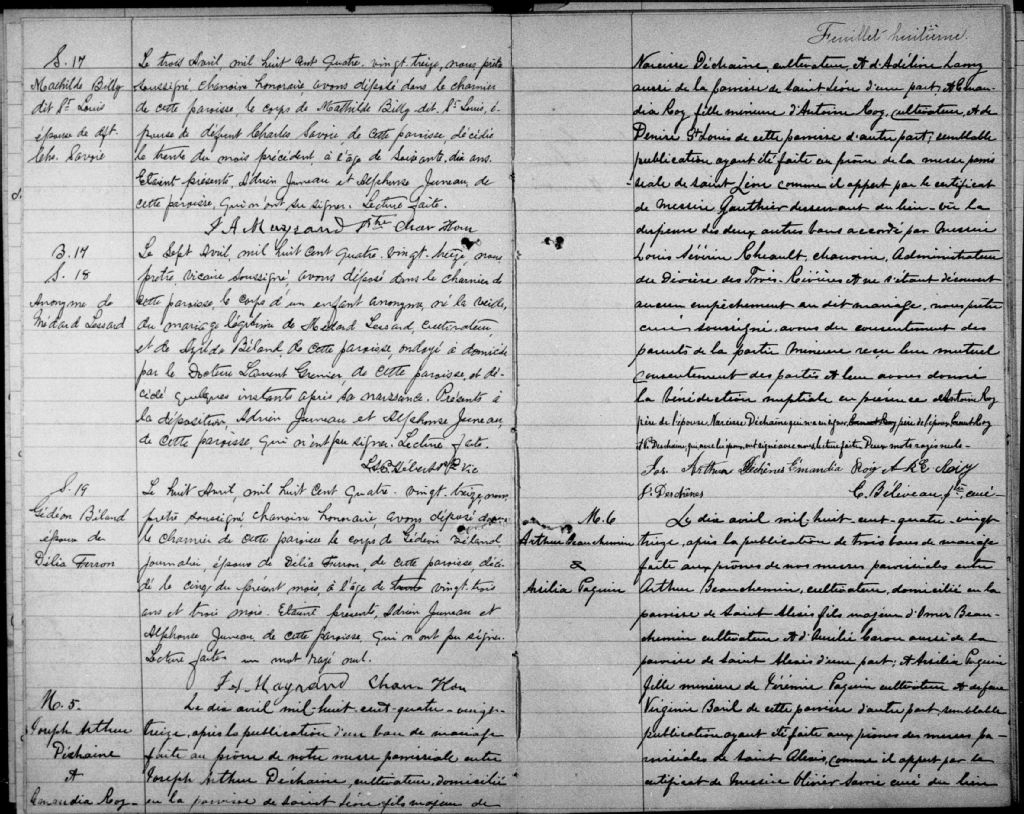 Feuillet huitième.
S. 17
Mathilde Billy
dit St Louis
épouse de dft.
Chs. Savoie
Le trois Avril, mil huit cent quatre-vingt-treize, nous prêtre
soussigné, chanoine honoraire avons déposé dans le charnier
de cette paroisse, le corps de Mathilde Billy dit St Louis, é-
pouse de défunt Charles Savoie de cette paroisse, décédée
le trente du mois précédent, à l'âge de soixante-dix ans.
Etaient présents, Adrien Juneau et Alphonse Juneau, de
cette paroisse, qui n'ont su signer. Lecture faite.
F A Mayrand Ptre Chan Hon
B. 17
S. 18
Anonyme de
Médard Lessard
Le sept Avril, mil huit cent quatre-vingt-treize, nous
prêtre, vicaire soussigné, avons déposé dans le charnier de
cette paroisse, le corps d'un enfant anonyme, né la veille,
du mariage légitime de Médard Lessard, cultivateur,
et de Béland, de cette paroisse, ondoyé à domicile
par le Docteur Laurent Grenier, de cette paroisse, et dé-
cédé quelques instants après sa naissance. Présents à
la déposition, Adrien Juneau et Alphonse Juneau,
de cette paroisse, qui n'ont pu signer. Lecture faite.
Ptre Vic
S. 19
Gédéon Béland
époux de
Délia Ferron
Le huit Avril, mil huit cent quatre-vingt-treize, nous
prêtre soussigné chanoine honoraire, avons déposé dans
le charnier de cette paroisse le corps de Gédéon Béland
journalier, époux de Délia Ferron, de cette paroisse, décé-
dé le cinq du présent mois, à l'âge de trente vingt-trois
ans et trois mois. Etaient présents, Adrien Juneau et
Alphonse Juneau de cette paroisse, qui n'ont pu signer.
Lecture faite un mot rayé nul.
F A Mayrand Chan Hon
M. 5.
Joseph Arthur
Déchaine
&
Emandia Roy
Le dix avril mil-huit-cent-quatre-vingt-
treize, après la publication d'un ban de mariage
faite au prône de notre messe paroissiale entre
Joseph Arthur Dechaine, cultivateur, domicilié
en la paroisse de Saint Léon, fils majeur de
Narcisse Déchaine, cultivateur, & d'Adéline Lamy
aussi de la paroisse de Saint Léon d'une part, & Eman-
dia Roy, fille mineure d'Antoine Roy, cultivateur, & de
Denise St Louis de cette paroisse d'autre part; semblable
publication ayant été faite au prône de la messe parois-
siale de Saint Léon comme il appert par le certificat
de Messire Gauthier desservant du lieu - vu la
dispense des deux autres bans accordé par Messire
Louis Séverin Rheault, chanoine, Administrateur
du Diocèse des Trois-Rivières & ne s'étant découvert
aucun empêchement au dit mariage, nous prêtre
curé soussigné, avons du consentement des
parents de la partie mineure reçu leur mutuel
consentement des parties & leur avons donné
la bénédiction nuptiale en présence d'Antoine Roy
père de l'épouse, Narcisse Déchaine
Lecture faite. Deux mots rayés nuls.
Jos. Arthur Dechênes Emandia Roy
Deschênes C. Béliveau, Ptre, curé
M. 6
Arthur Beauchemin
&
Arsélia Paquin
Le dix avril mil-huit-cent-quatre-vingt
treize, après la publication de trois bans de mariage
faite aux prônes de nos messes paroissiales entre
Arthur Beauchemin, cultivateur, domicilié en la
paroisse de Saint Alexis fils majeur d'Omer Beau-
chemin cultivateur & d'Emilie Caron aussi de la
paroisse de Saint Alexis d'une part; & Arsélia Paquin
fille mineure de Jérémie Paquin cultivateur & de feue
Virginie Baril de cette paroisse d'autre part, semblable
publication ayant été faite aux prônes des messes pa-
roissiales de Saint Alexis, comme il appert par le
certificat de Messire Olivier Savoie curé du lieu